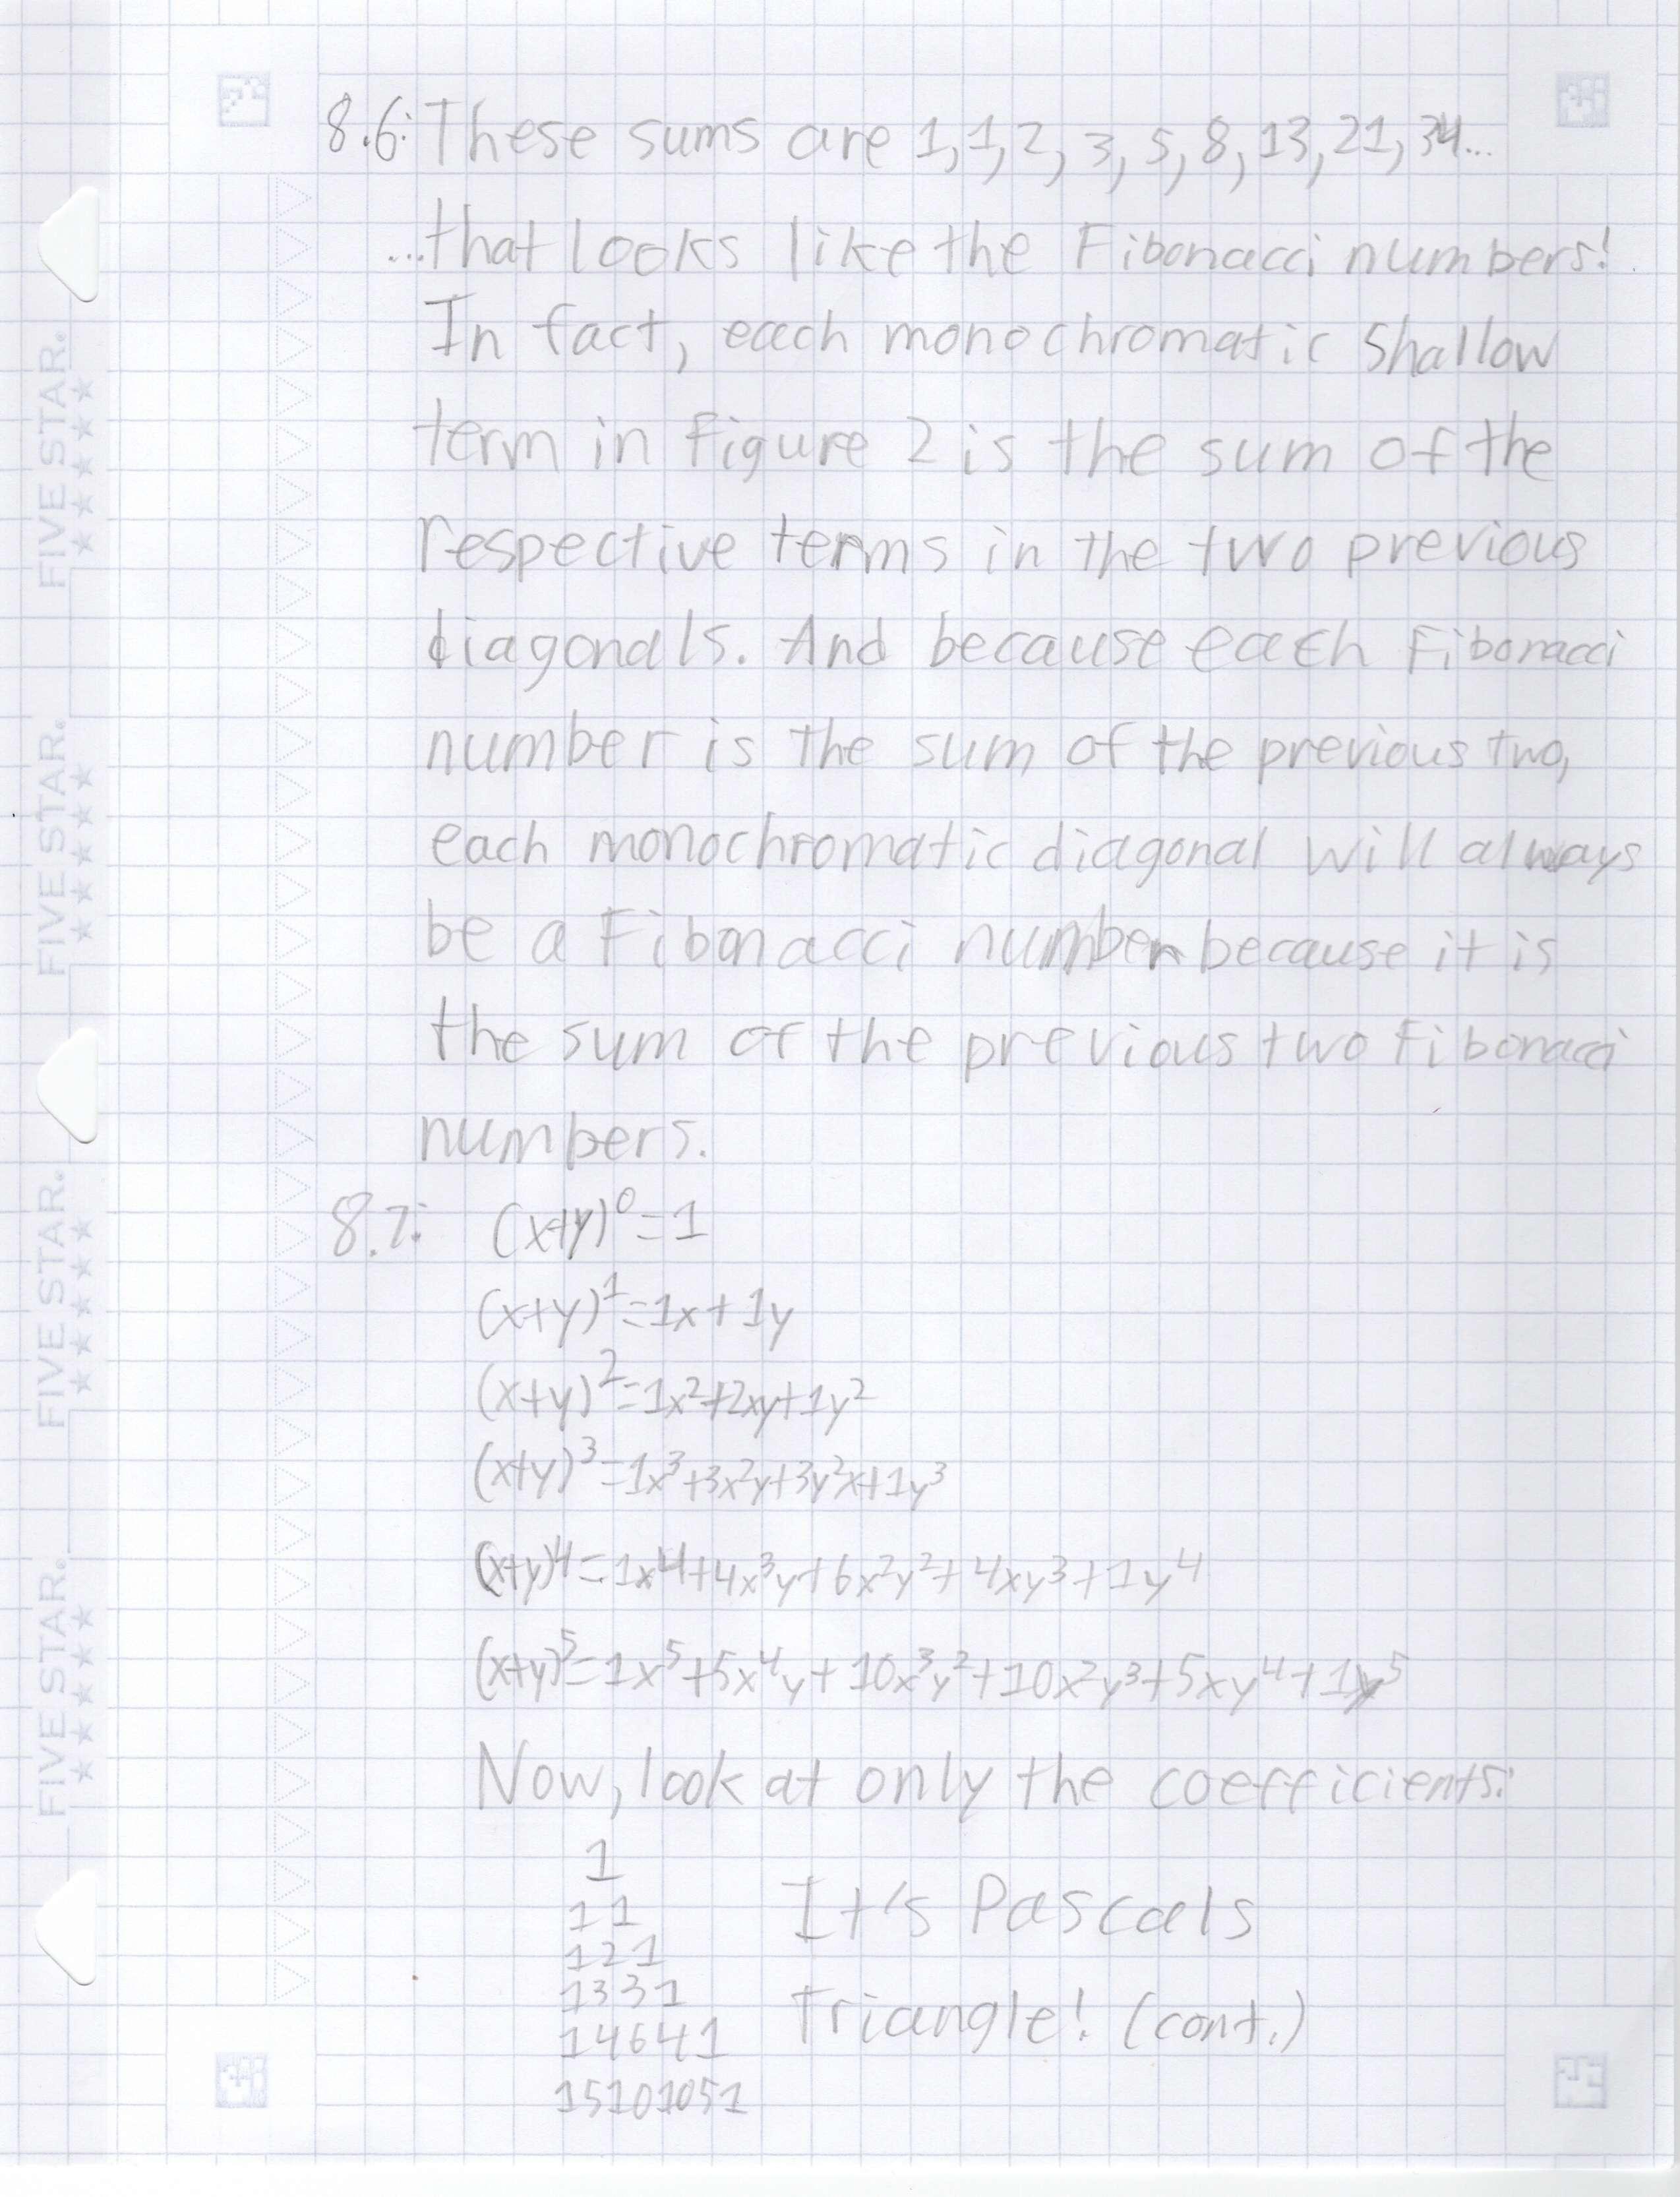 8.6: These sums are 1, 1, 2, 3, 5, 8, 13, 21, 34...
...that looks like the Fibonacci numbers!
In fact, each monochromatic shallow
term in Figure 2 is the sum of the
respective terms in the two previous
diagonals. And because each Fibonacci
number is the sum of the previous two,
each monochromatic diagonal will always
be a Fibonacci number because it is
the sum of the previous two Fibonacci
numbers.
8.7: (x+y)⁰=1
(x+y)¹=1x+1y
(x+y)²=1x²+2xy+1y²
(x+y)³=1x³+3x²y+3y²x+1y³
(x+y)⁴=1x⁴+4x³y+6x²y²+4xy³+1y⁴
(x+y)⁵=1x⁵+5x⁴y+10x³y²+10x²y³+5xy⁴+1y⁵
Now, look at only the coefficients:
1
1 1
1 2 1
1 3 3 1
1 4 6 4 1
1 5 10 10 5 1
It's Pascals
Triangle! (cont.)
FIVE STAR.
FIVE STAR.
FIVE STAR.
FIVE STAR.